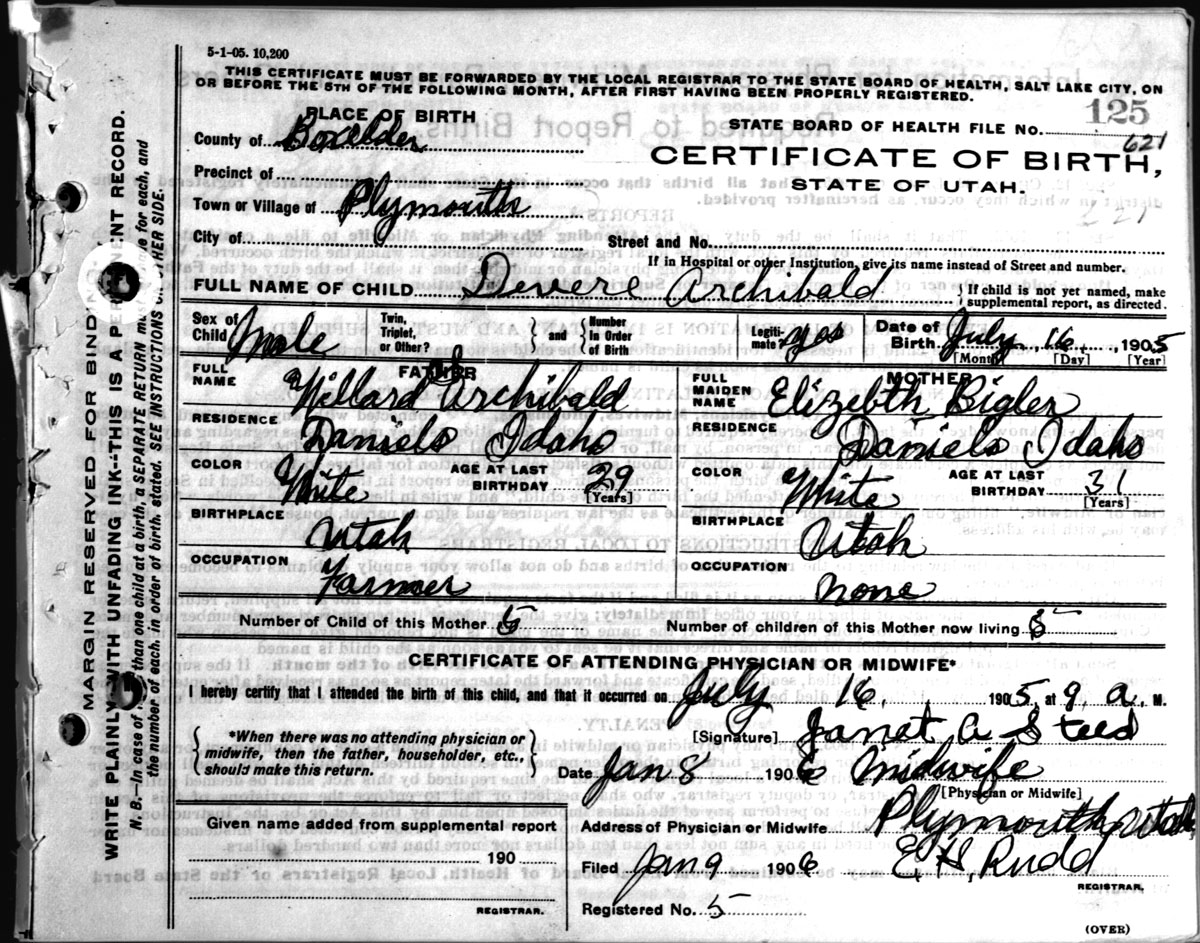 5-1-05. 10,200
THIS CERTIFICATE MUST BE FORWARDED BY THE LOCAL REGISTRAR TO THE STATE BOARD OF HEALTH, SALT LAKE CITY, ON
OR BEFORE THE 5TH OF THE FOLLOWING MONTH, AFTER FIRST HAVING BEEN PROPERLY REGISTERED.
PLACE OF BIRTH
County of Boxelder
Precinct of
Town or Village of Plymouth
City of
STATE BOARD OF HEALTH FILE NO. 125
621
CERTIFICATE OF BIRTH,
STATE OF UTAH.
621
Street and No.
If in Hospital or other Institution, give its name instead of Street and number.
FULL NAME OF CHILD Devere Archibald { If child is not yet named, make supplemental report, as directed.
Sex of Child Male
Twin, Triplet, or Other? } and { Number in Order of Birth
Legitimate? yes
Date of Birth July 16, 1905
[Month] [Day] [Year]
FATHER
FULL NAME Willard S Archibald
RESIDENCE Daniels Idaho
COLOR White
AGE AT LAST BIRTHDAY 29 [Years]
BIRTHPLACE Utah
OCCUPATION Farmer
MOTHER
FULL MAIDEN NAME Elizebth Bigler
RESIDENCE Daniels Idaho
COLOR White
AGE AT LAST BIRTHDAY 31 [Years]
BIRTHPLACE Utah
OCCUPATION none
Number of Child of this Mother 5
Number of children of this Mother now living 5
CERTIFICATE OF ATTENDING PHYSICIAN OR MIDWIFE*
I hereby certify that I attended the birth of this child, and that it occurred on July 16 1905, at 9 a. M.
{ *When there was no attending physician or midwife, then the father, householder, etc., should make this return. }
[Signature] Janet A Steed
Date Jan 8 1906 Midwife
[Physician or Midwife]
Given name added from supplemental report
190
REGISTRAR.
Address of Physician or Midwife Plymouth, Utah,
Filed Jan 9 1906 E, H, Rudd
REGISTRAR.
Registered No. 5
(OVER)
MARGIN RESERVED FOR BINDING
WRITE PLAINLY WITH UNFADING INK--THIS IS A PERMANENT RECORD.
N. B.—In case of more than one child at a birth a SEPARATE RETURN must be made for each, and
the number of each, in order of birth, stated. SEE INSTRUCTIONS OTHER SIDE.